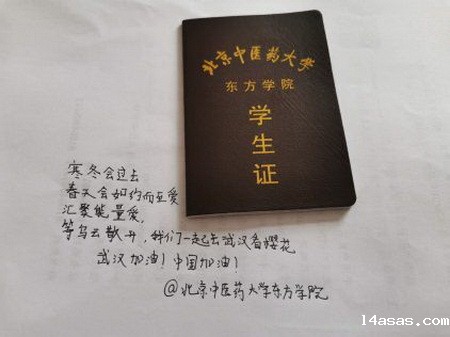 北京中医药大学
东方学院
学生证
寒冬会过去
春天会如约而至爱
汇聚能量爱,
等乌云散开,我们一起去武汉看樱花
武汉加油!中国加油!
@北京中医药大学东方学院
14asas.com